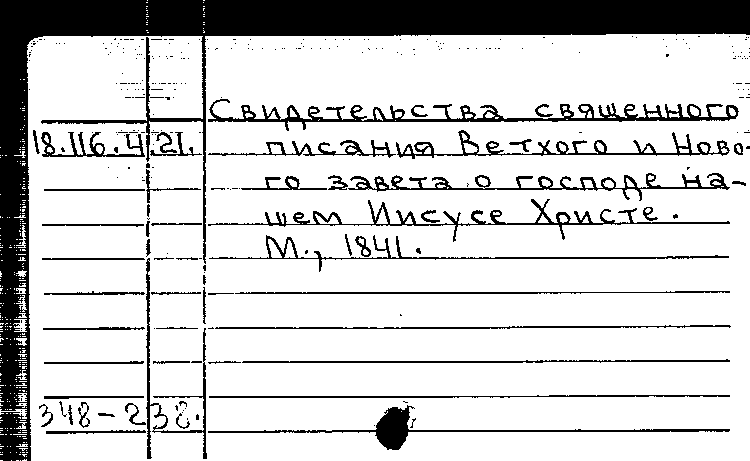 Свидетельства священного
18.116.4.21. писания Ветхого и Ново-
го завета о господе на-
шем Иисусе Христе.
М., 1841.
348-238.